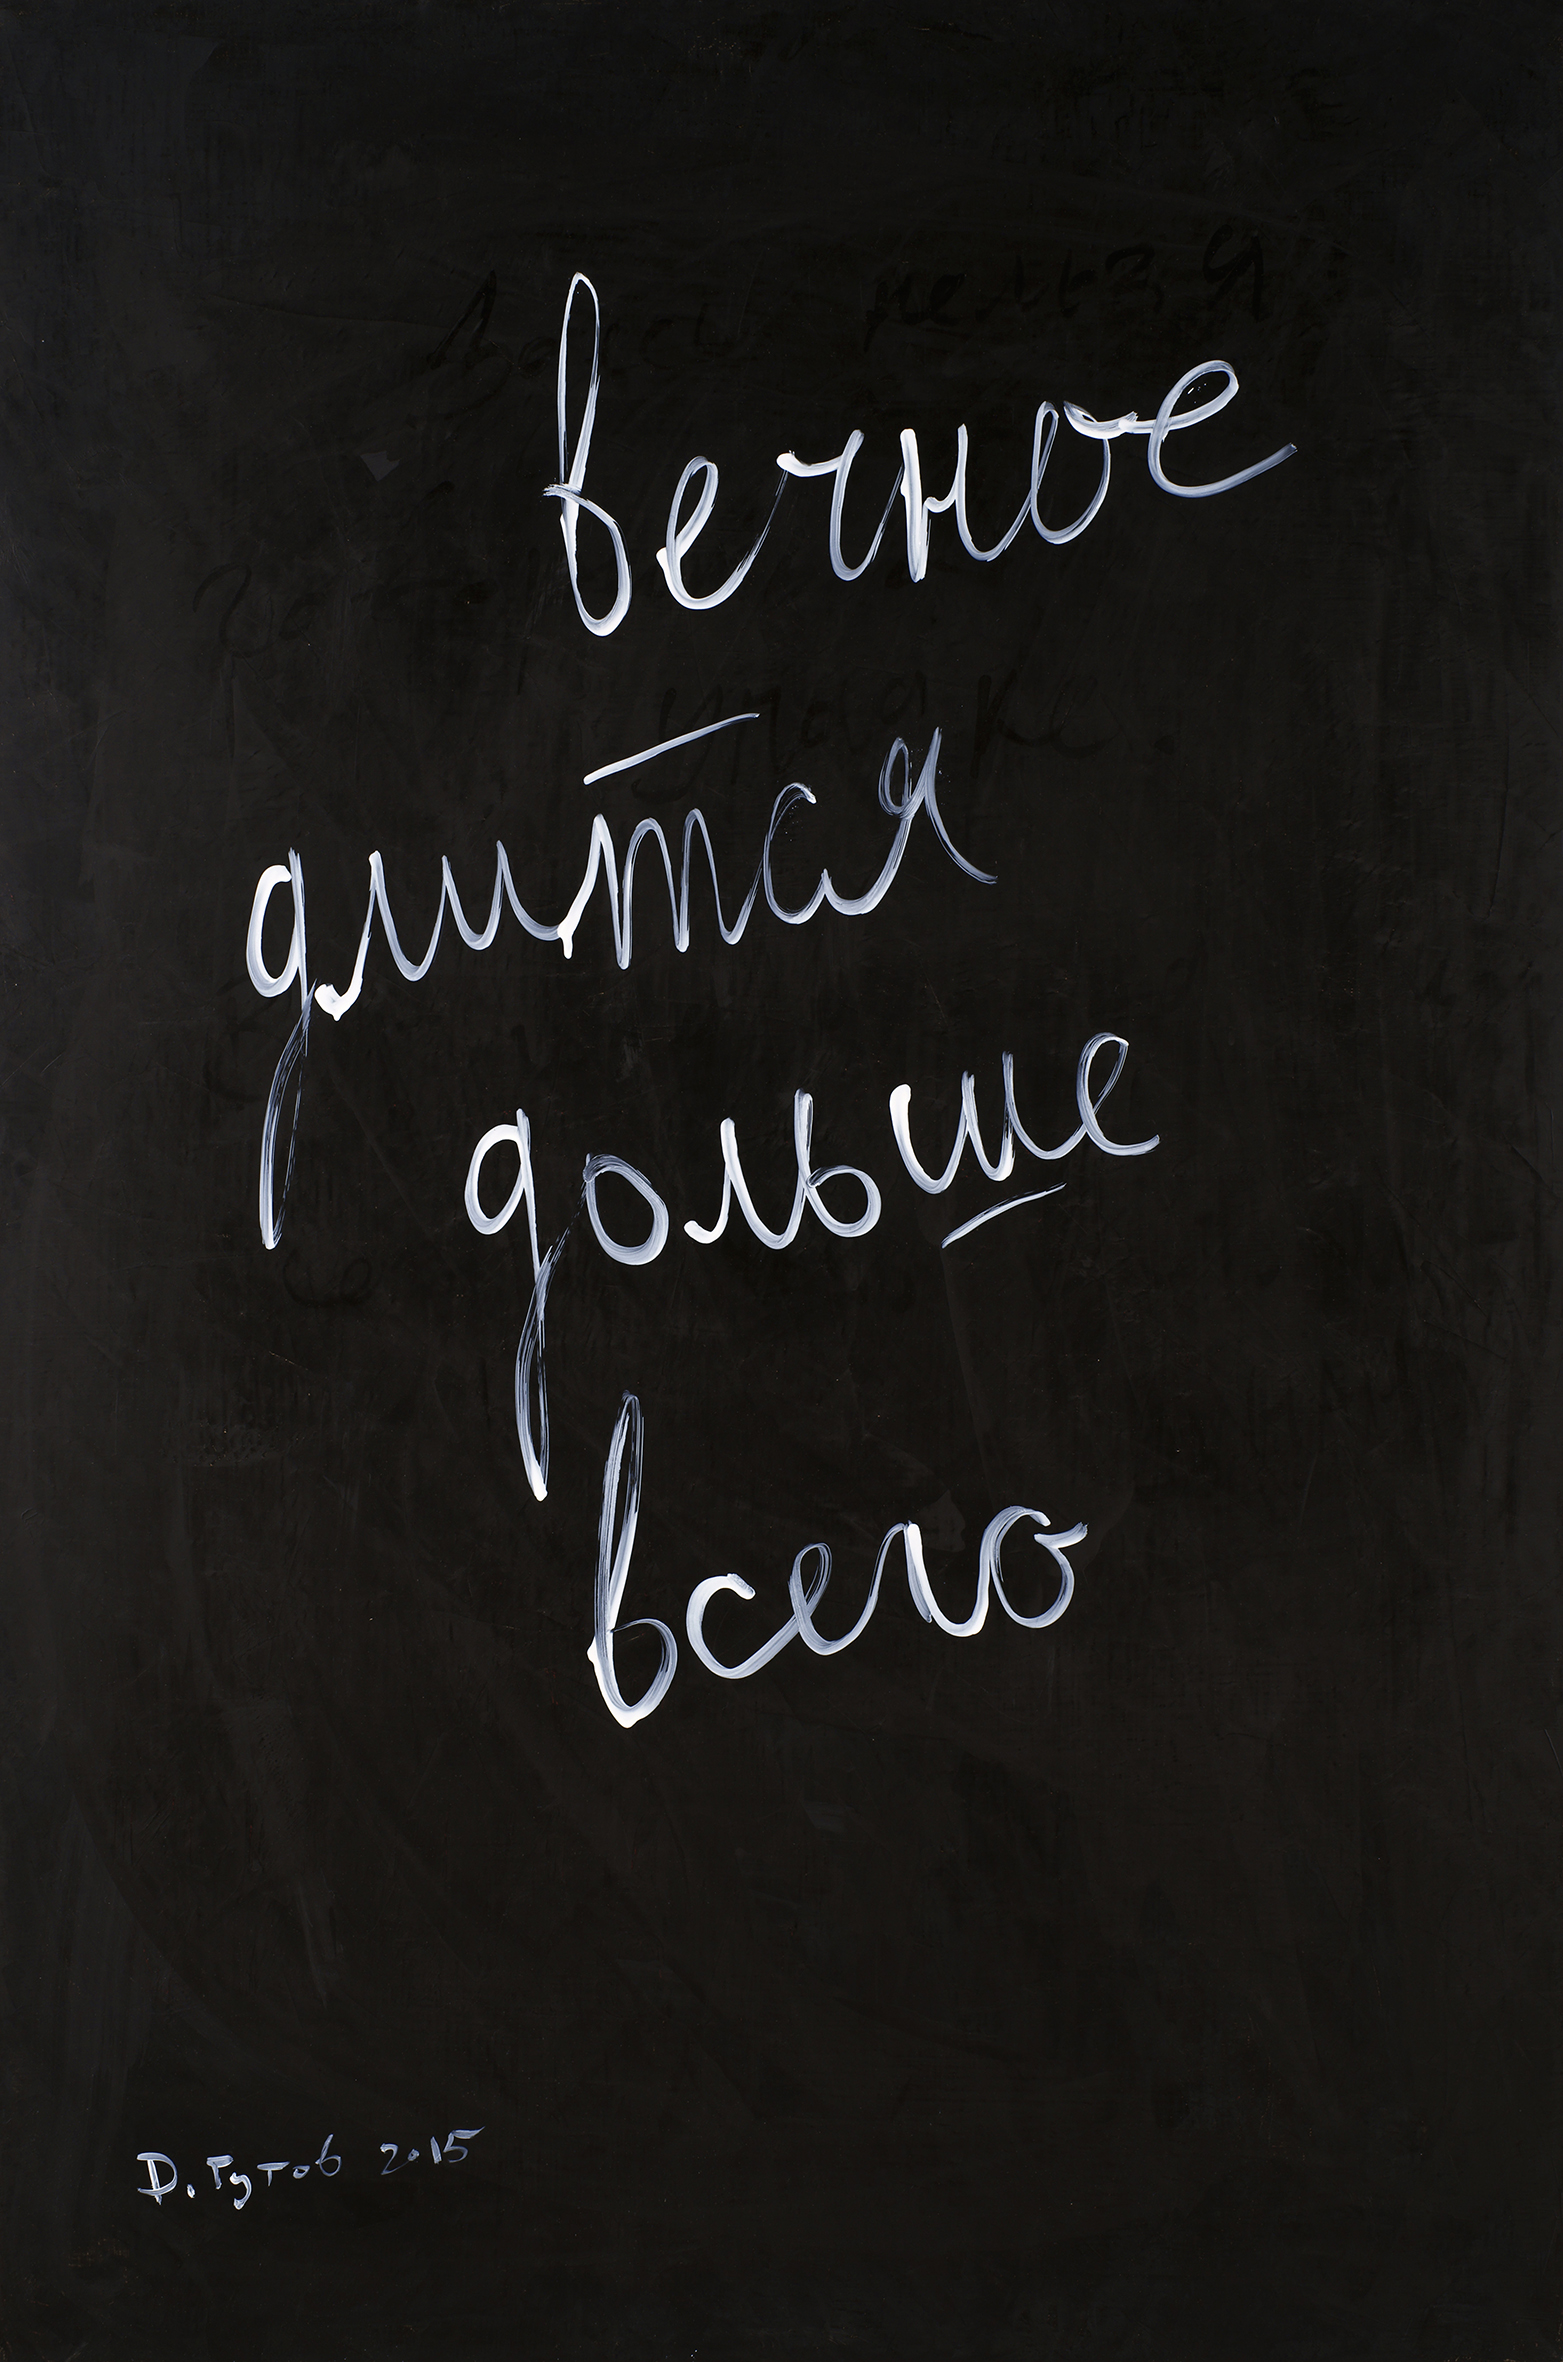 вечное
длится
дольше
всего
D. Гутов 2015